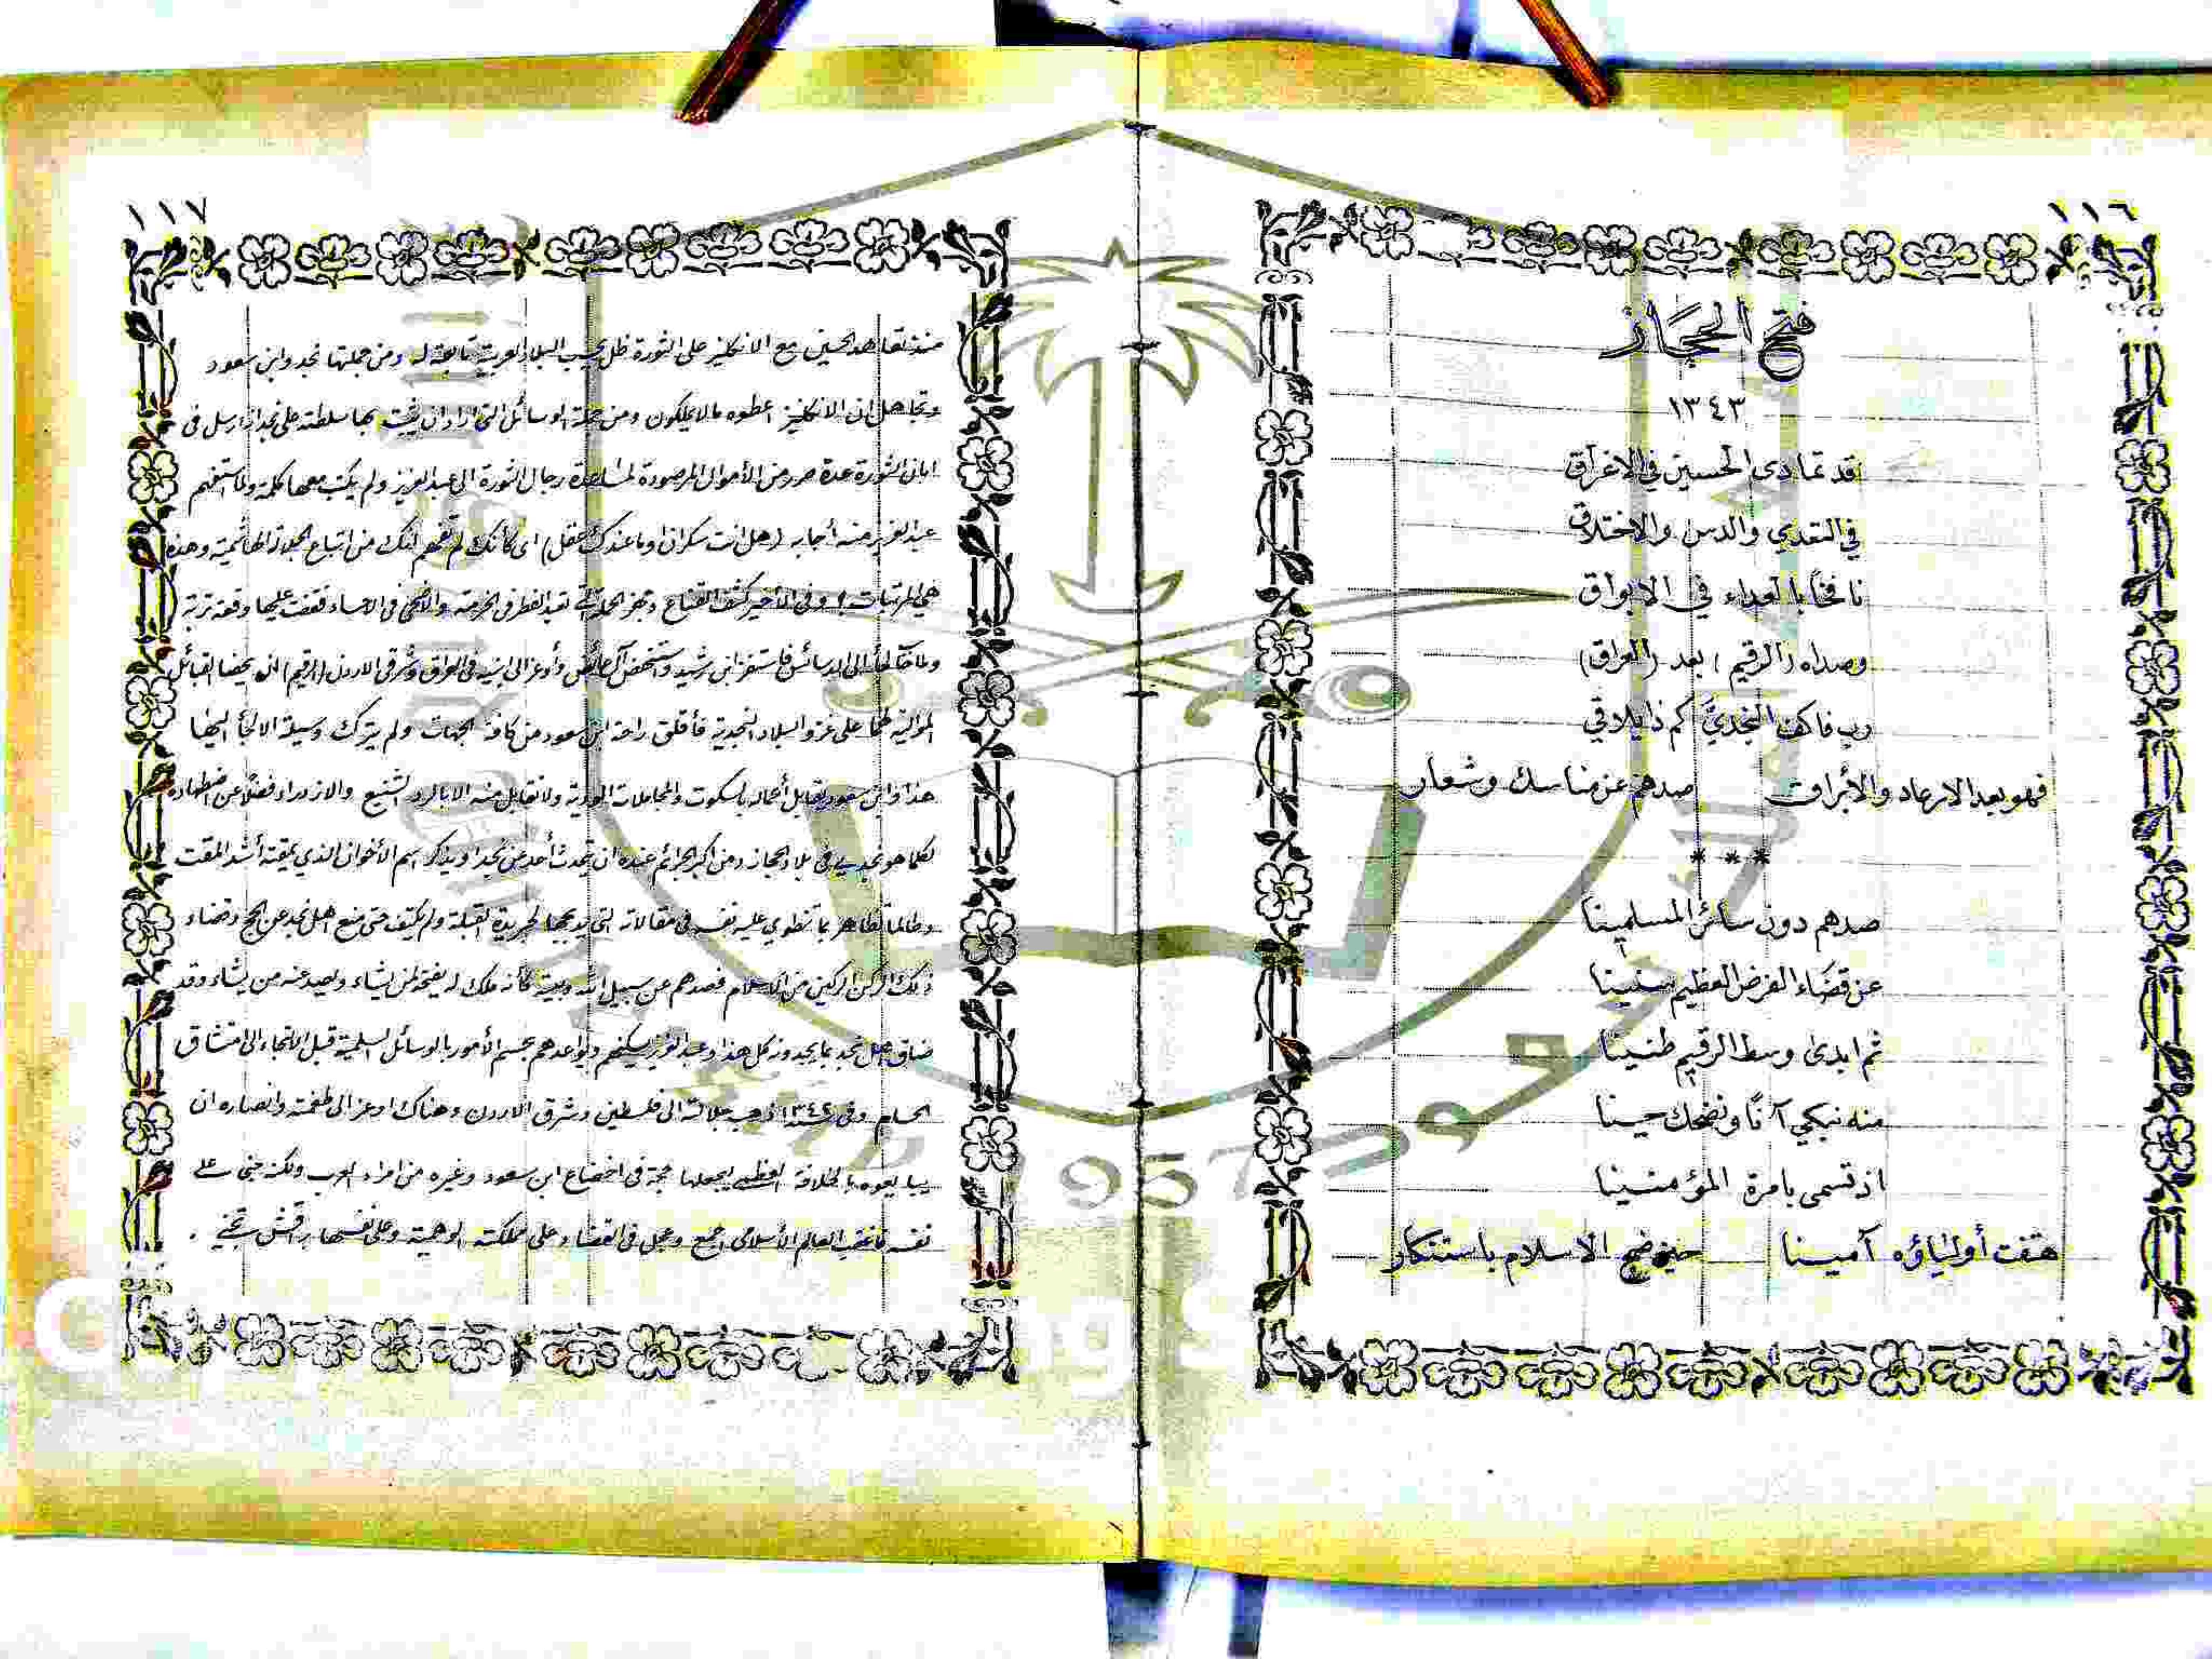 ١١٦
فتح الحجاز
١٣٤٣
قد تمادى الحسين في الاغراق
في التعدي والدس والاختلاق
نافخاً بالعداء في الابواق
وصداه (الرقيم) بعد (العراق)
رب فاكف النجديَّ كم ذا يلاقي
فهو بعد الارعاد والأبراق صدهم عن مناسك وشعار
* * *
صدهم دون سائر المسلمينا
عن قضاء الفرض العظيم سنينا
ثم ابدى وسط الرقيم طنينا
منه نبكي آنًا ونضحك حينا
اذ تسمى بامرة المؤمنينا
هتفت أولياؤه آمينا حين ضج الاسلام باستنكار
١١٧
منذ تعاهد الحسين مع الانكليز على الثورة ظل يحسب البلاد العربية تابعة له ومن جملتها نجد وابن سعود
وتجاهل ان الانكليز اعطوه ما لا يملكون ومن جملة الوسائل التي اراد ان يثبت بها سلطته على نجد ان ارسل في
ابان الثورة عدة صرر من الأموال المرصودة لمساعدة رجال الثورة الى عبدالعزيز ولم يكتب معها كلمة ولما استفهم
عبدالعزيز منه أجابه (هل انت سكران او ما عندك عقل) اى كانك لم تفهم انك من اتباع الهاشمية وهذه
هي المرتبات! وفي الأخير كشف القناع وجهز لعيد الفطر في الخرمة والأضحى في الاحساء فقضت عليها وقعة تربة
ولما لجأ الى الدسائس فاستفز ابن رشيد واستنهض آل عائض وأوعز الى ابنيه في العراق وشرقي الاردن (الرقيم) ان يحضا القبائل
الموالية لهما على غزو البلاد النجدية فأقلق راحة ابن سعود من كافة الجهات ولم يترك وسيلة الا لجأ اليها
هذا وابن سعود يقابل أعماله بالسكوت والمجاملات الودية ولا تقابل منه الا بالرد الشنيع والازدراء فضلاً عن اضطهاده
لكل ما هو نجدي في بلاد الحجاز ومن اكبر الجرائم عنده ان يتحدث أحد عن نجد او يذكر اسم الأخوان الذي يمقته أشد المقت
وطالما تظاهر بما تنطوي عليه نفسه في مقالاته التي لجريدة القبلة ولم يكتف حتى منع اهل نجد عن الحج وقضاء
ذلك الركن الركين من الاسلام فصدهم عن سبيل الله وبيته كأنه ملك له يفتحه لمن يشاء ويصد عنه من يشاء وقد
ضاق اهل نجد بما يجدونه كل هذا وعبدالعزيز يسكنهم ويواعدهم بحسم الأمور بالوسائل السلمية قبل الالتجاء الى امتشاق
الحسام وفي سنة ١٣٤٢ ذهب جلالته الى فلسطين وشرق الاردن وهناك اوعز الى طغمته وانصاره ان
يبايعوه بالخلافة العظمى ليجعلها حجة في اخضاع ابن سعود وغيره من امراء العرب ولكنه جنى على
نفسه فأغضب العالم الأسلامى اجمع وعجل في القضاء على مملكته الوهمية وعلى نفسها براقش تجني .